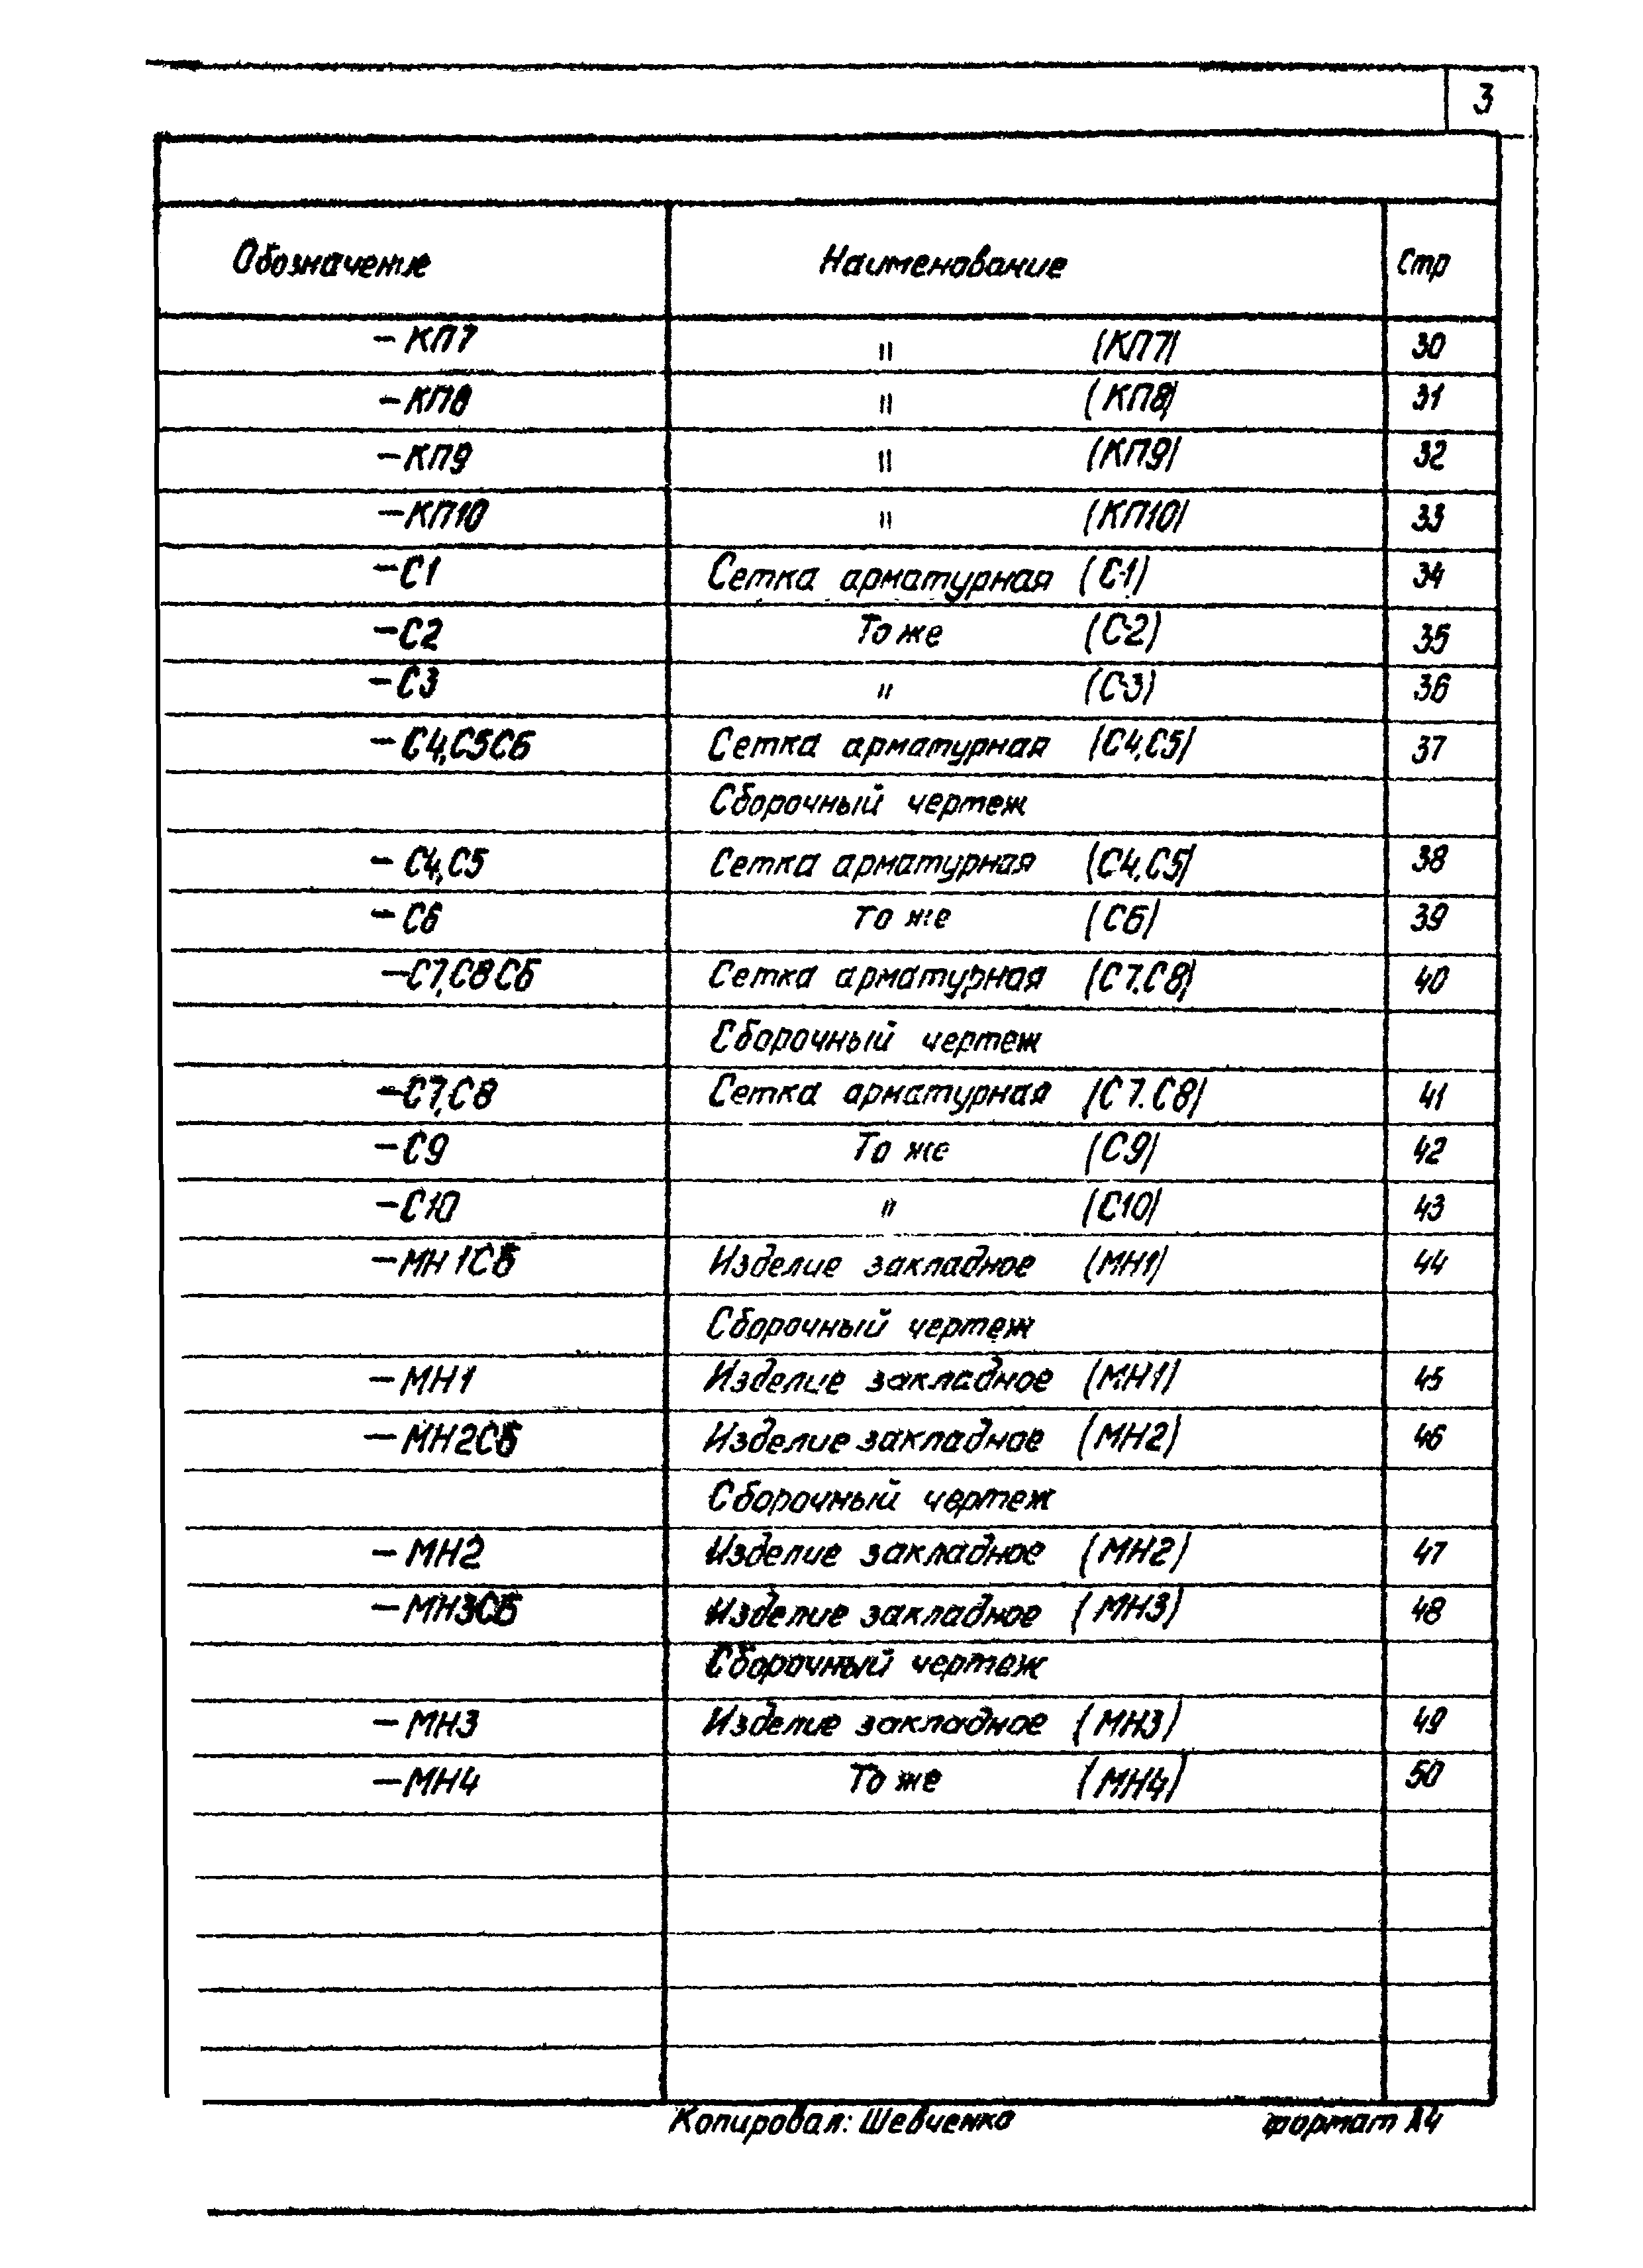 3
Обозначение Наименование Стр
-КП7 " (КП7) 30
-КП8 " (КП8) 31
-КП9 " (КП9) 32
-КП10 " (КП10) 33
-С1 Сетка арматурная (С-1) 34
-С2 То же (С-2) 35
-С3 " (С-3) 36
-С4,С5СБ Сетка арматурная (С4,С5) 37
Сборочный чертеж
-С4,С5 Сетка арматурная (С4,С5) 38
-С6 То же (С6) 39
-С7,С8СБ Сетка арматурная (С7,С8) 40
Сборочный чертеж
-С7,С8 Сетка арматурная (С7.С8) 41
-С9 То же (С9) 42
-С10 " (С10) 43
-МН1СБ Изделие закладное (МН1) 44
Сборочный чертеж
-МН1 Изделие закладное (МН1) 45
-МН2СБ Изделие закладное (МН2) 46
Сборочный чертеж
-МН2 Изделие закладное (МН2) 47
-МН3СБ Изделие закладное (МН3) 48
Сборочный чертеж
-МН3 Изделие закладное (МН3) 49
-МН4 То же (МН4) 50
Копировал: Шевченко формат А4